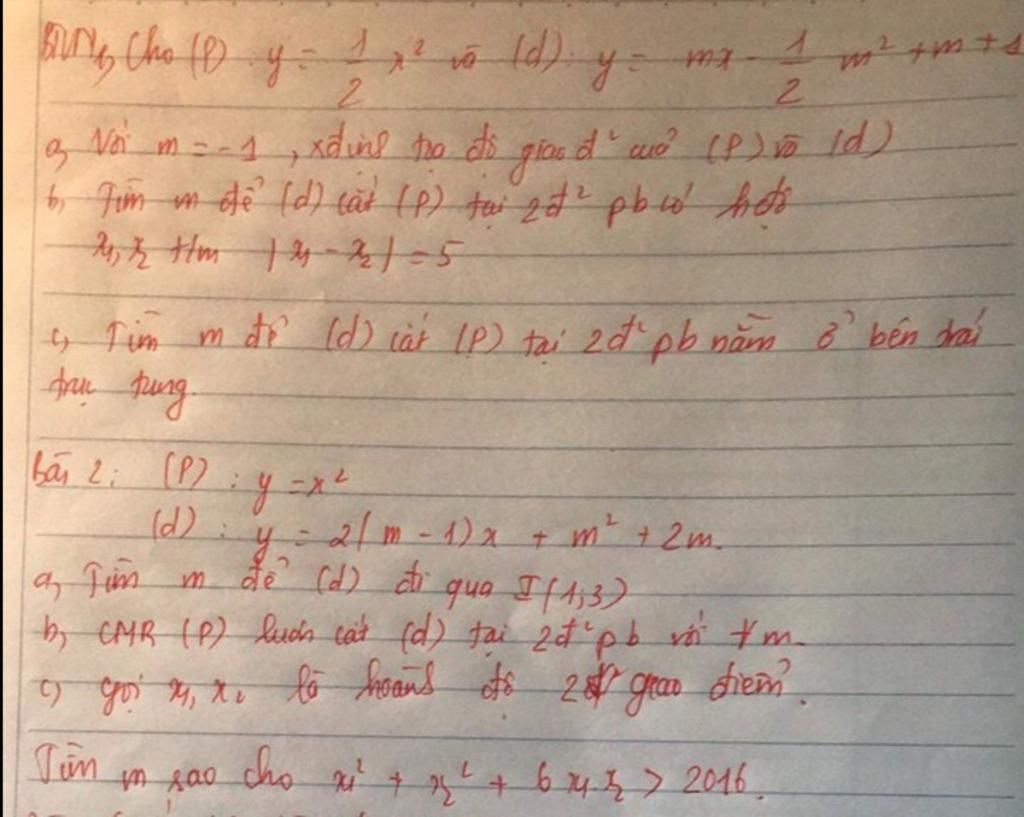 BTVN: Cho (P): y = 1/2 x² và (d): y = mx - 1/2 m² + m + 1
a, Với m = -1, xđịnh tọa độ giao đ² của (P) và (d)
b, Tìm m để (d) cắt (P) tại 2đ² pb có h.độ
x₁, x₂ t/m |x₁ - x₂| = 5
c, Tìm m để (d) cắt (P) tại 2đ² pb nằm ở bên trái
trục tung.
Bài 2: (P): y = x²
(d): y = 2(m - 1)x + m² + 2m.
a, Tìm m để (d) đi qua I(1;3)
b, CMR (P) luôn cắt (d) tại 2đ² pb với ∀m.
c, gọi x₁, x₂ là hoành độ 2đ² giao điểm.
Tìm m sao cho x₁² + x₂² + 6x₁x₂ > 2016.